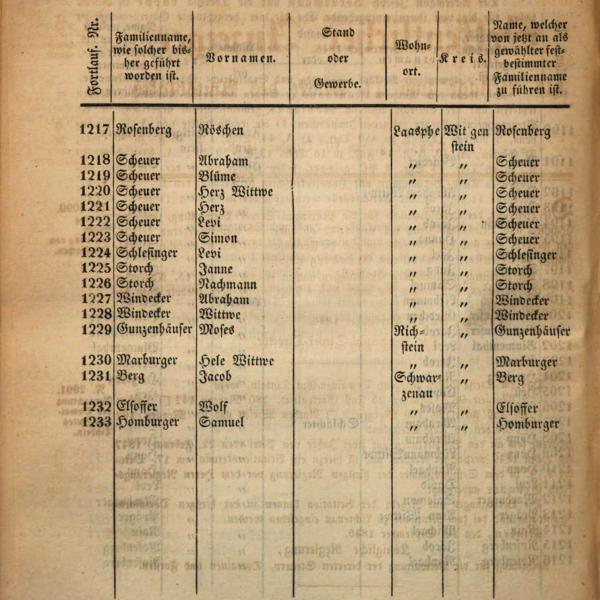 Fortlauf. Nr. | Familienname, wie solcher bis- her geführt worden ist. | Vornamen. | Stand oder Gewerbe. | Wohn- ort. | Kreis. | Name, welcher von jetzt an als gewählter fest- bestimmter Familienname zu führen ist.
1217 Rosenberg Röschen Laasphe Witgen Rosenberg
stein
1218 Scheuer Abraham „ „ Scheuer
1219 Scheuer Blüme „ „ Scheuer
1220 Scheuer Herz Wittwe „ „ Scheuer
1221 Scheuer Herz „ „ Scheuer
1222 Scheuer Levi „ „ Scheuer
1223 Scheuer Simon „ „ Scheuer
1224 Schlesinger Levi „ „ Schlesinger
1225 Storch Janne „ „ Storch
1226 Storch Nachmann „ „ Storch
1227 Windecker Abraham „ „ Windecker
1228 Windecker Wittwe „ „ Windecker
1229 Gunzenhäuser Moses Rich- „ Gunzenhäuser
stein
1230 Marburger Hele Wittwe „ „ Marburger
1231 Berg Jacob Schwar- „ Berg
zenau
1232 Elsoffer Wolf „ „ Elsoffer
1233 Homburger Samuel „ „ Homburger